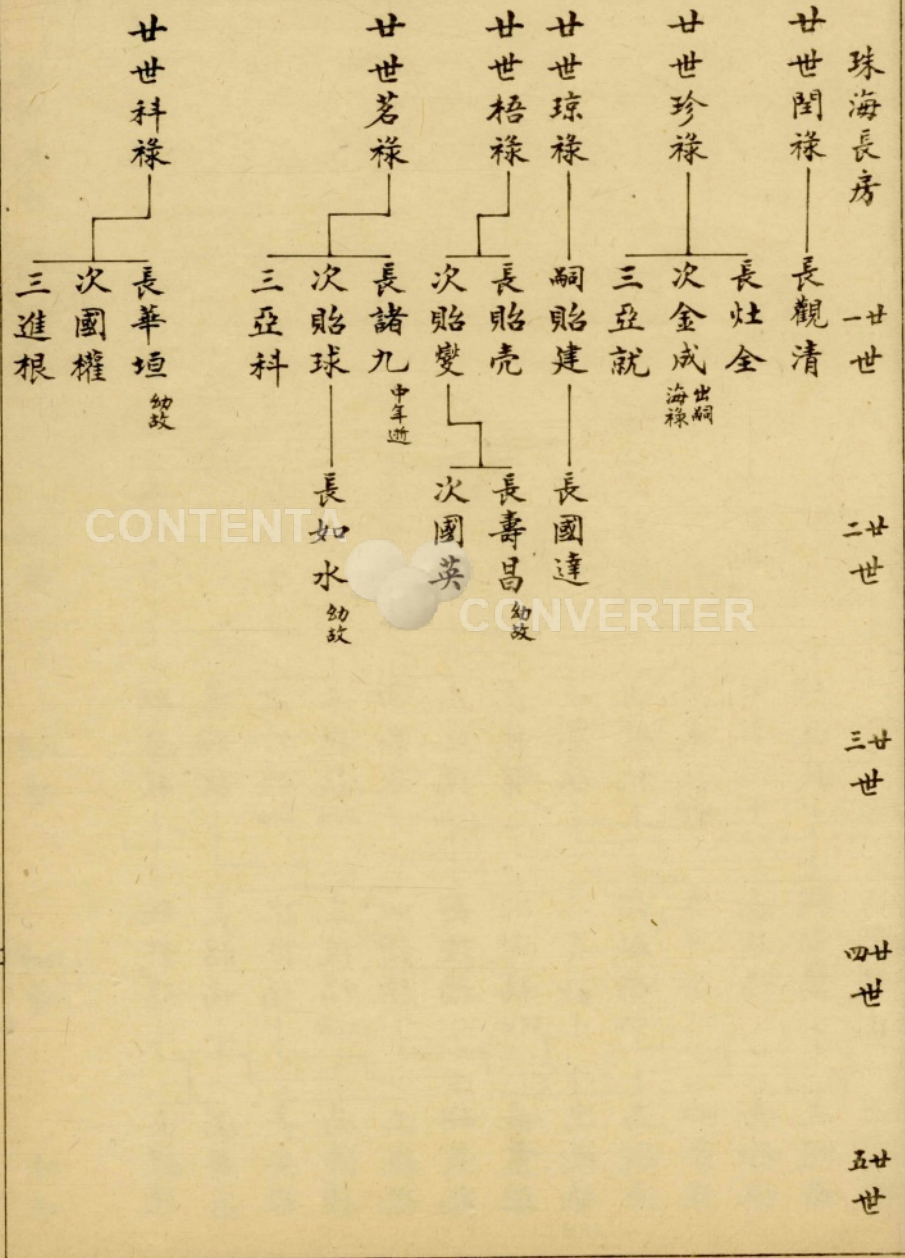 珠海長房
廿一世
廿二世
廿三世
廿四世
廿五世
廿世閏祿
長觀清
廿世珍祿
長灶全
次金成 出嗣海祿
三亞就
廿世琼祿
嗣貽建
長國達
廿世梧祿
長貽壳
次貽變
長壽昌 幼故
次國英
廿世茗祿
長諸九 中年逝
次貽球
三亞科
長如水 幼故
廿世科祿
長華垣 幼故
次國權
三進根
CONTENTA
CONVERTER